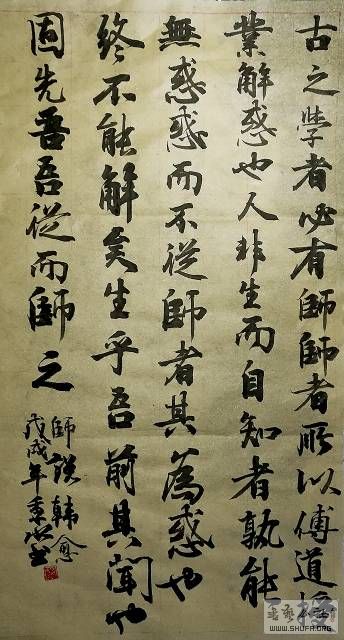 古之學者必有師師者所以傳道授
業解惑也人非生而自知者孰能
無惑惑而不從師者其為惑也
終不能解矣生乎吾前其聞也
固先吾吾從而師之
師說韓愈
戊戌年書
WWW.SHUFA.ORG